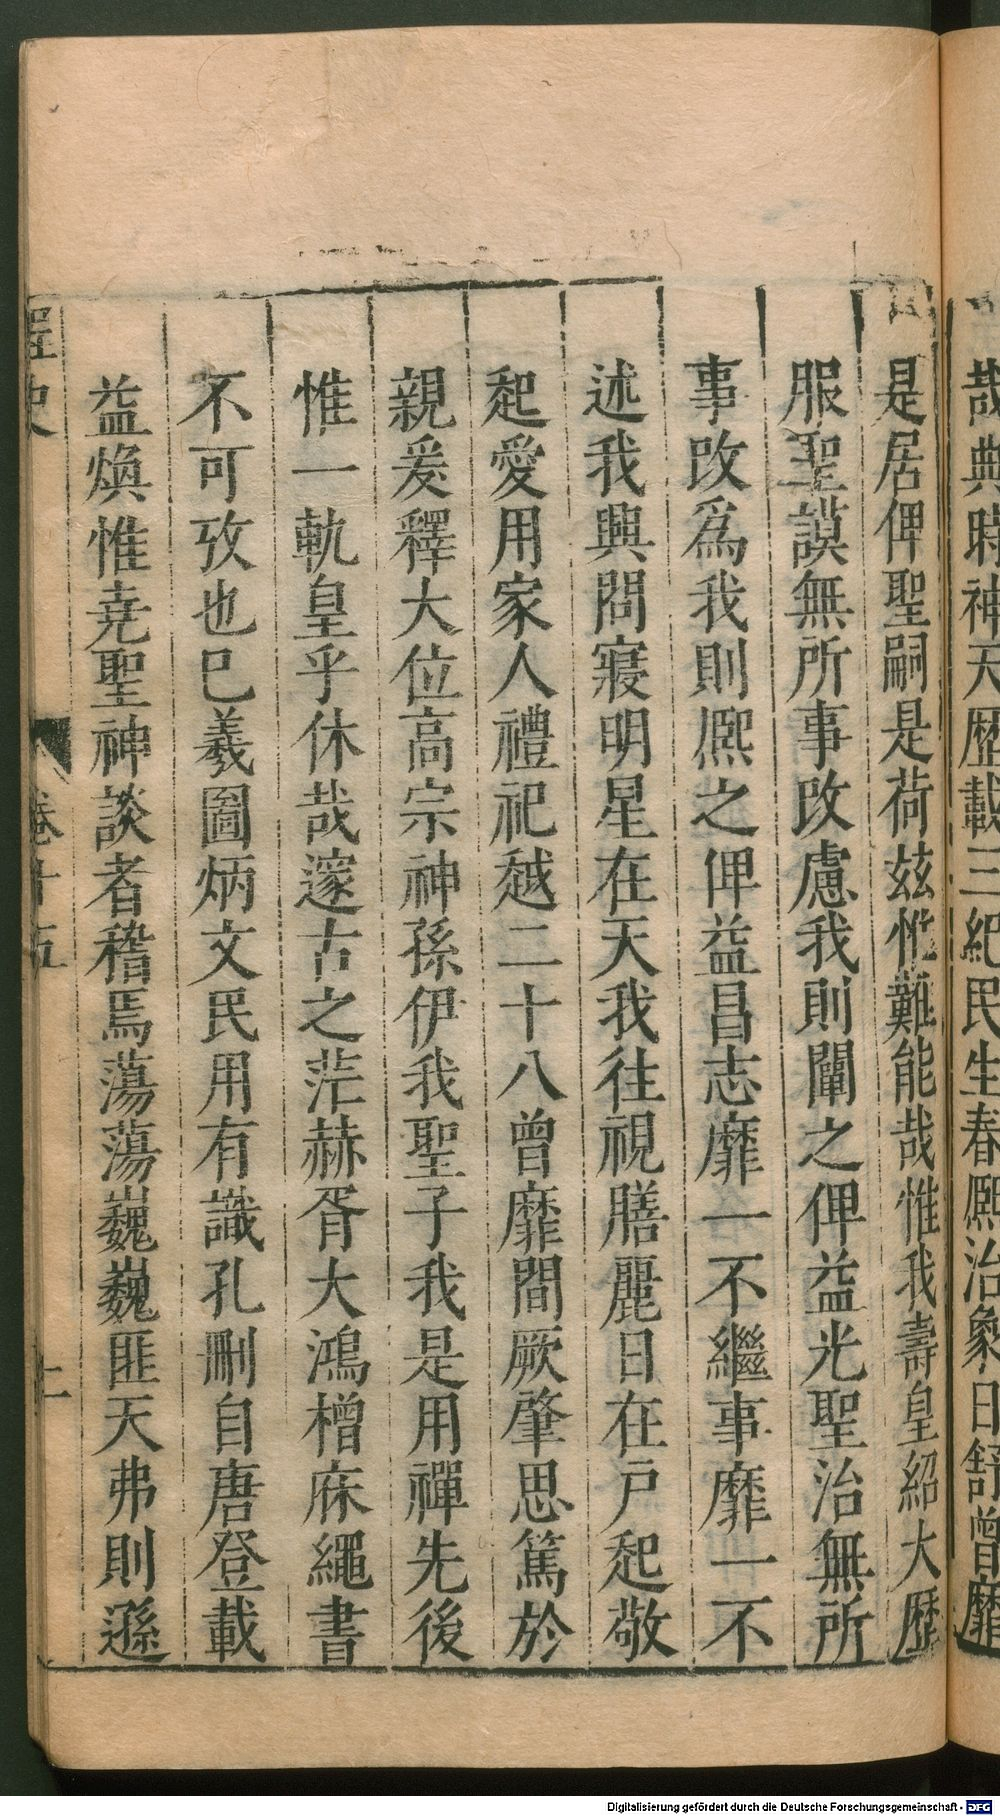 哉典時神天歷載三紀民生春熙治象日舒曾靡
是居俾聖嗣是荷茲惟難能哉惟我壽皇紹大歷
服聖謨無所事改慮我則闡之俾益光聖治無所
事改爲我則熈之俾益昌志靡一不繼事靡一不
述我興問寢明星在天我往視膳麗日在戸起敬
起愛用家人禮祀越二十八曾靡間厥肇思篤於
親爰釋大位高宗神孫伊我聖子我是用禪先後
惟一軌皇乎休哉邃古之茫赫胥大鴻橧庥繩書
不可攷也巳羲圖炳文民用有識孔刪自唐登載
益煥惟堯聖神談者稽焉蕩蕩巍巍匪天弗則遜
桯史
卷十五
二
Digitalisierung gefördert durch die Deutsche Forschungsgemeinschaft - DFG